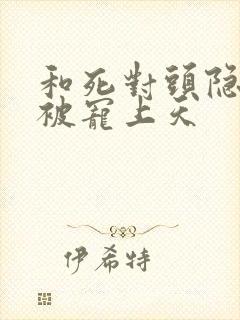 和死對頭隐
被寵上天
伊希特